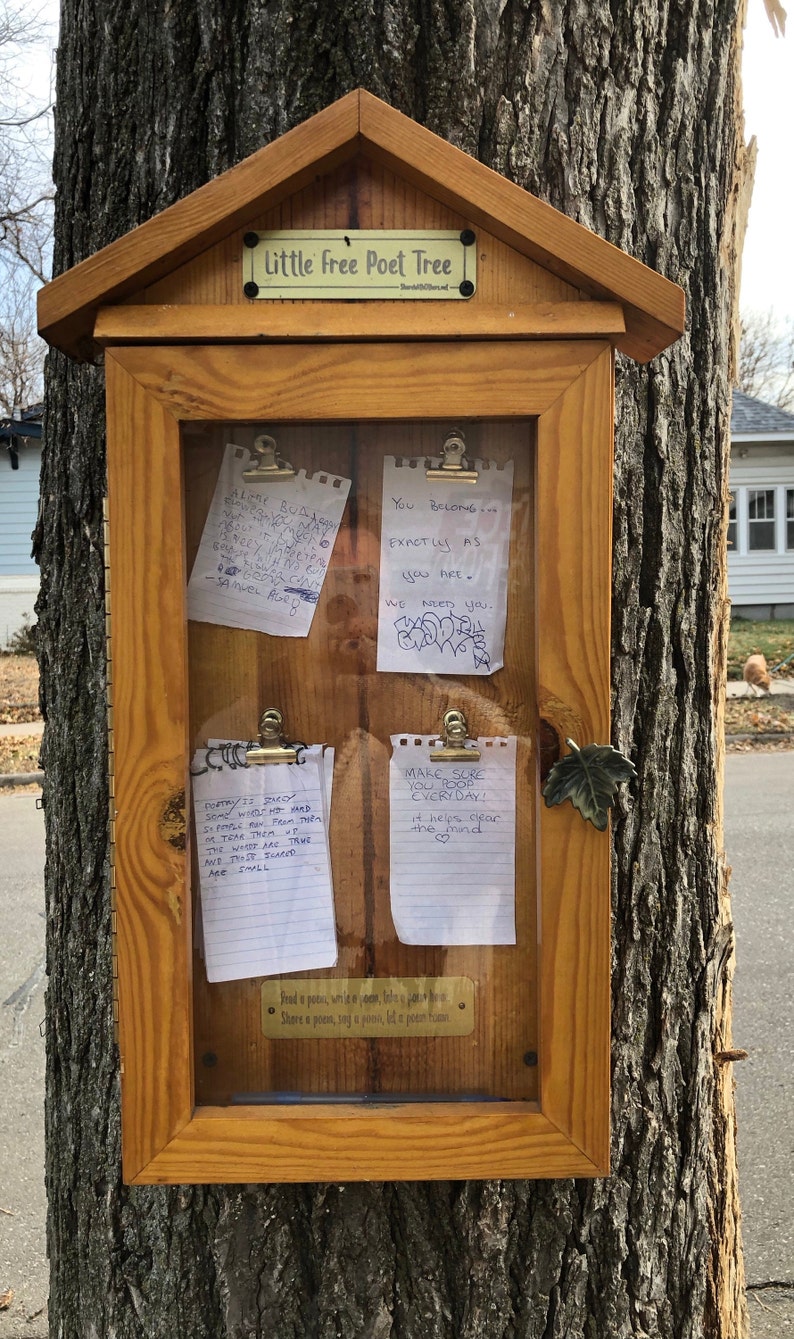 Little Free Poet Tree
ShareWithOthers.net
YOU BELONG...
EXACTLY AS
YOU ARE.
WE NEED YOU.
POETRY IS SCARY
SOME WORDS HARD
SO PEOPLE RUN FROM THEM
OR TEAR THEM UP
THE WORDS ARE TRUE
AND THOSE SCARED
ARE SMALL
MAKE SURE
YOU POOP
EVERYDAY!
it helps clear
the mind
Read a poem, write a poem, take a poem home.
Share a poem, say a poem, let a poem roam.
A LONE BUD
FLOWER YOU MAY
NOT
ABOUT IT
IS
BECAUSE
GROW
-SAMUEL